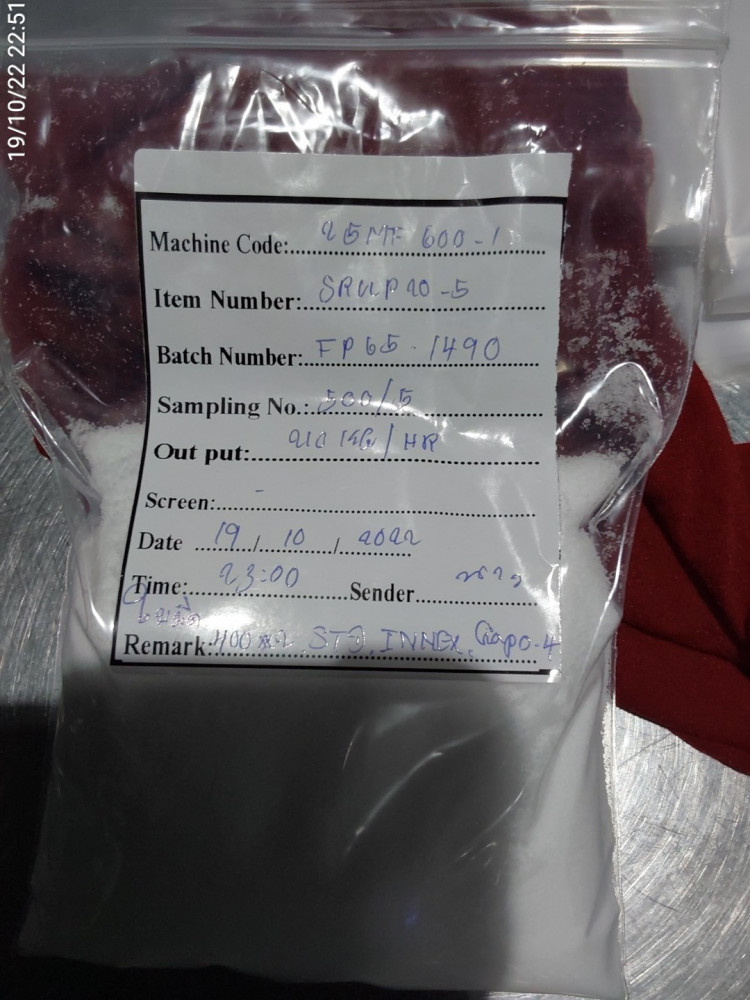 19/10/22 22:51
Machine Code: 25MF 600-1
Item Number: SRUP20-5
Batch Number: FP65-1490
Sampling No.: 500/5
Out put: 210 KG/HR
Screen: -
Date 19/10/2022
Time: 23:00 Sender
ใบมีด
Remark: 400 STD, INNEX, 0-4